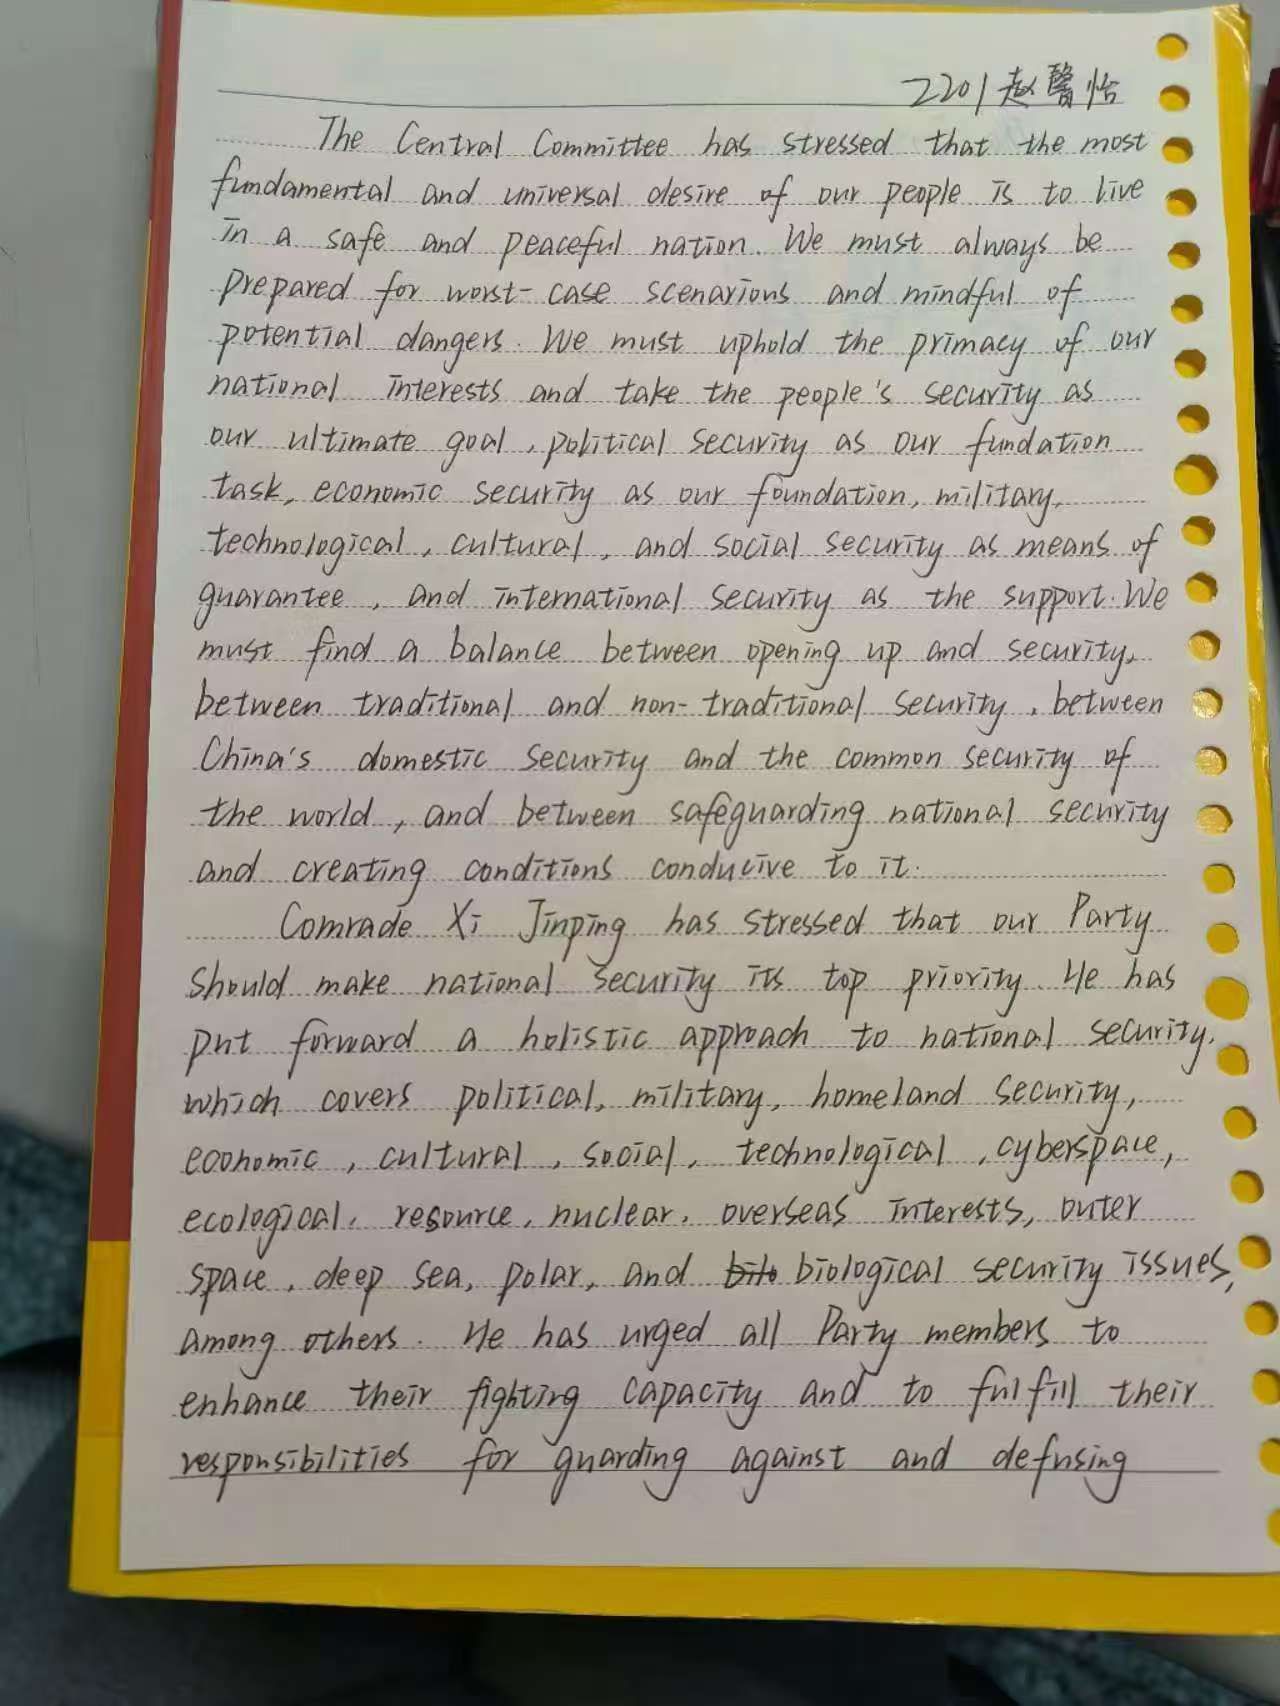 2201赵馨怡
The Central Committee has stressed that the most
fundamental and universal desire of our people is to live
in a safe and peaceful nation. We must always be
prepared for worst-case scenarions and mindful of
potential dangers. We must uphold the primacy of our
national interests and take the people's security as
our ultimate goal, political security as our fundation
task, economic security as our foundation, military,
technological, cultural, and social security as means of
guarantee, and international security as the support. We
must find a balance between opening up and security,
between traditional and non-traditional security, between
China's domestic security and the common security of
the world, and between safeguarding national security
and creating conditions conducive to it.
Comrade Xi Jinping has stressed that our Party
should make national security its top priority. He has
put forward a holistic approach to national security,
which covers political, military, homeland security,
economic, cultural, social, technological, cyberspace,
ecological, resource, nuclear, overseas interests, outer
space, deep sea, polar, and biological security issues,
among others. He has urged all Party members to
enhance their fighting capacity and to fulfill their
responsibilities for guarding against and defusing